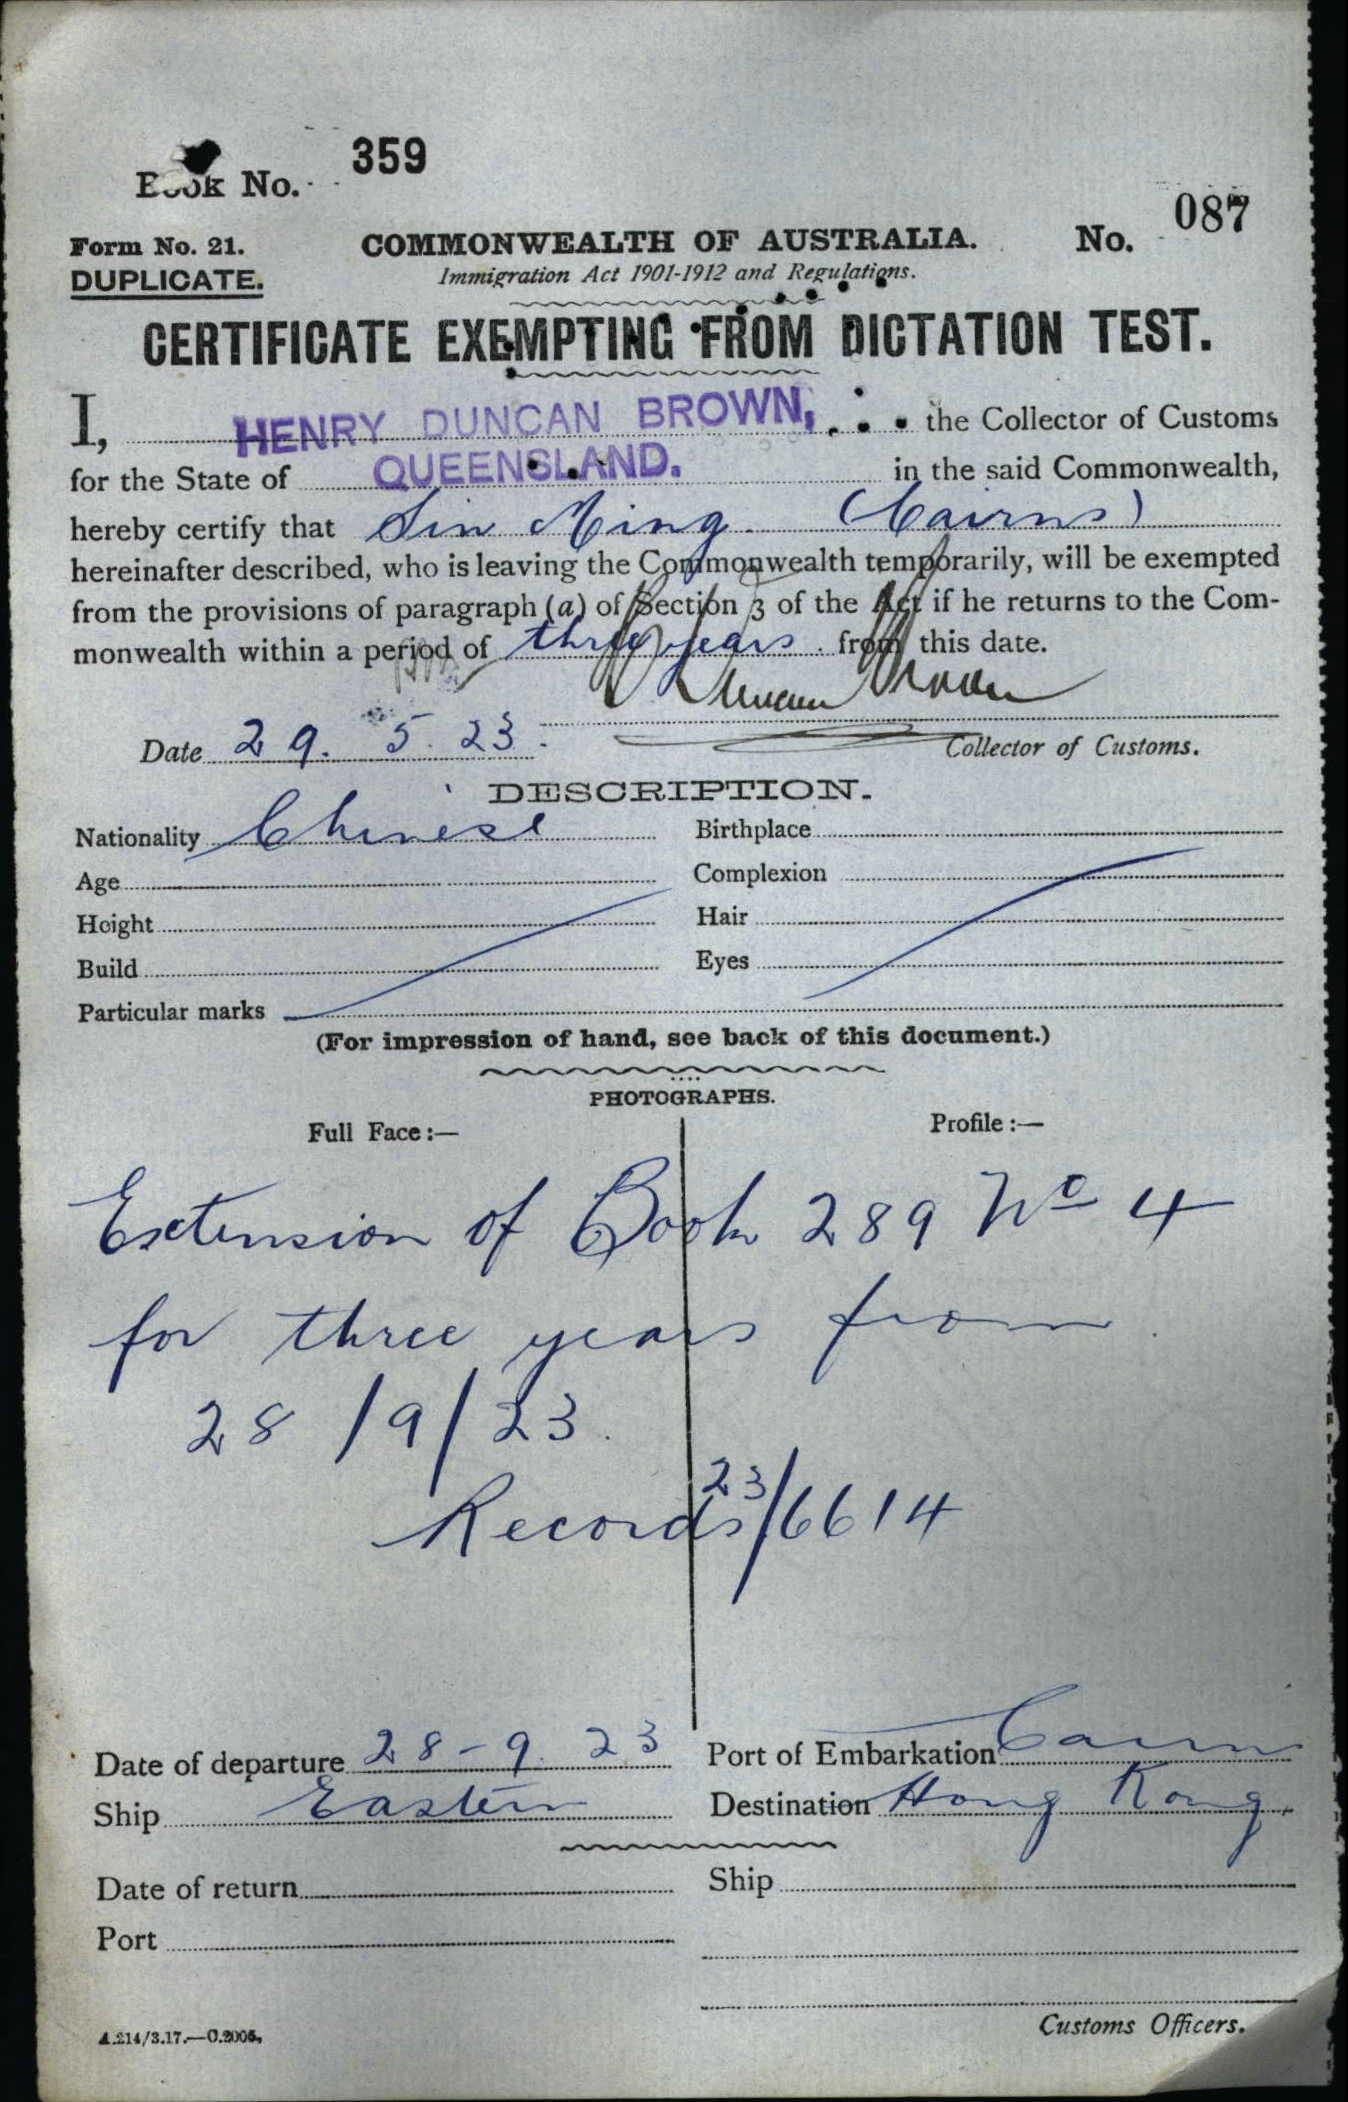 Book No. 359
087
Form No. 21. COMMONWEALTH OF AUSTRALIA. No.
DUPLICATE. Immigration Act 1901-1912 and Regulations.
CERTIFICATE EXEMPTING FROM DICTATION TEST.
I, HENRY DUNCAN BROWN, the Collector of Customs
for the State of QUEENSLAND. in the said Commonwealth,
hereby certify that Sin Ming (Cairns)
hereinafter described, who is leaving the Commonwealth temporarily, will be exempted
from the provisions of paragraph (a) of Section 3 of the Act if he returns to the Com-
monwealth within a period of three years from this date.
H Duncan Brown
Date 29. 5. 23. Collector of Customs.
DESCRIPTION.
Nationality Chinese Birthplace
Age Complexion
Height Hair
Build Eyes
Particular marks
(For impression of hand, see back of this document.)
PHOTOGRAPHS.
Full Face:— Profile:—
Extension of Book 289 No 4
for three years from
28/9/23.
Records 23/6614
Date of departure 28-9.23 Port of Embarkation Cairns
Ship Eastern Destination Hong Kong.
Date of return Ship
Port
Customs Officers.
A.214/3.17.—C.2005.